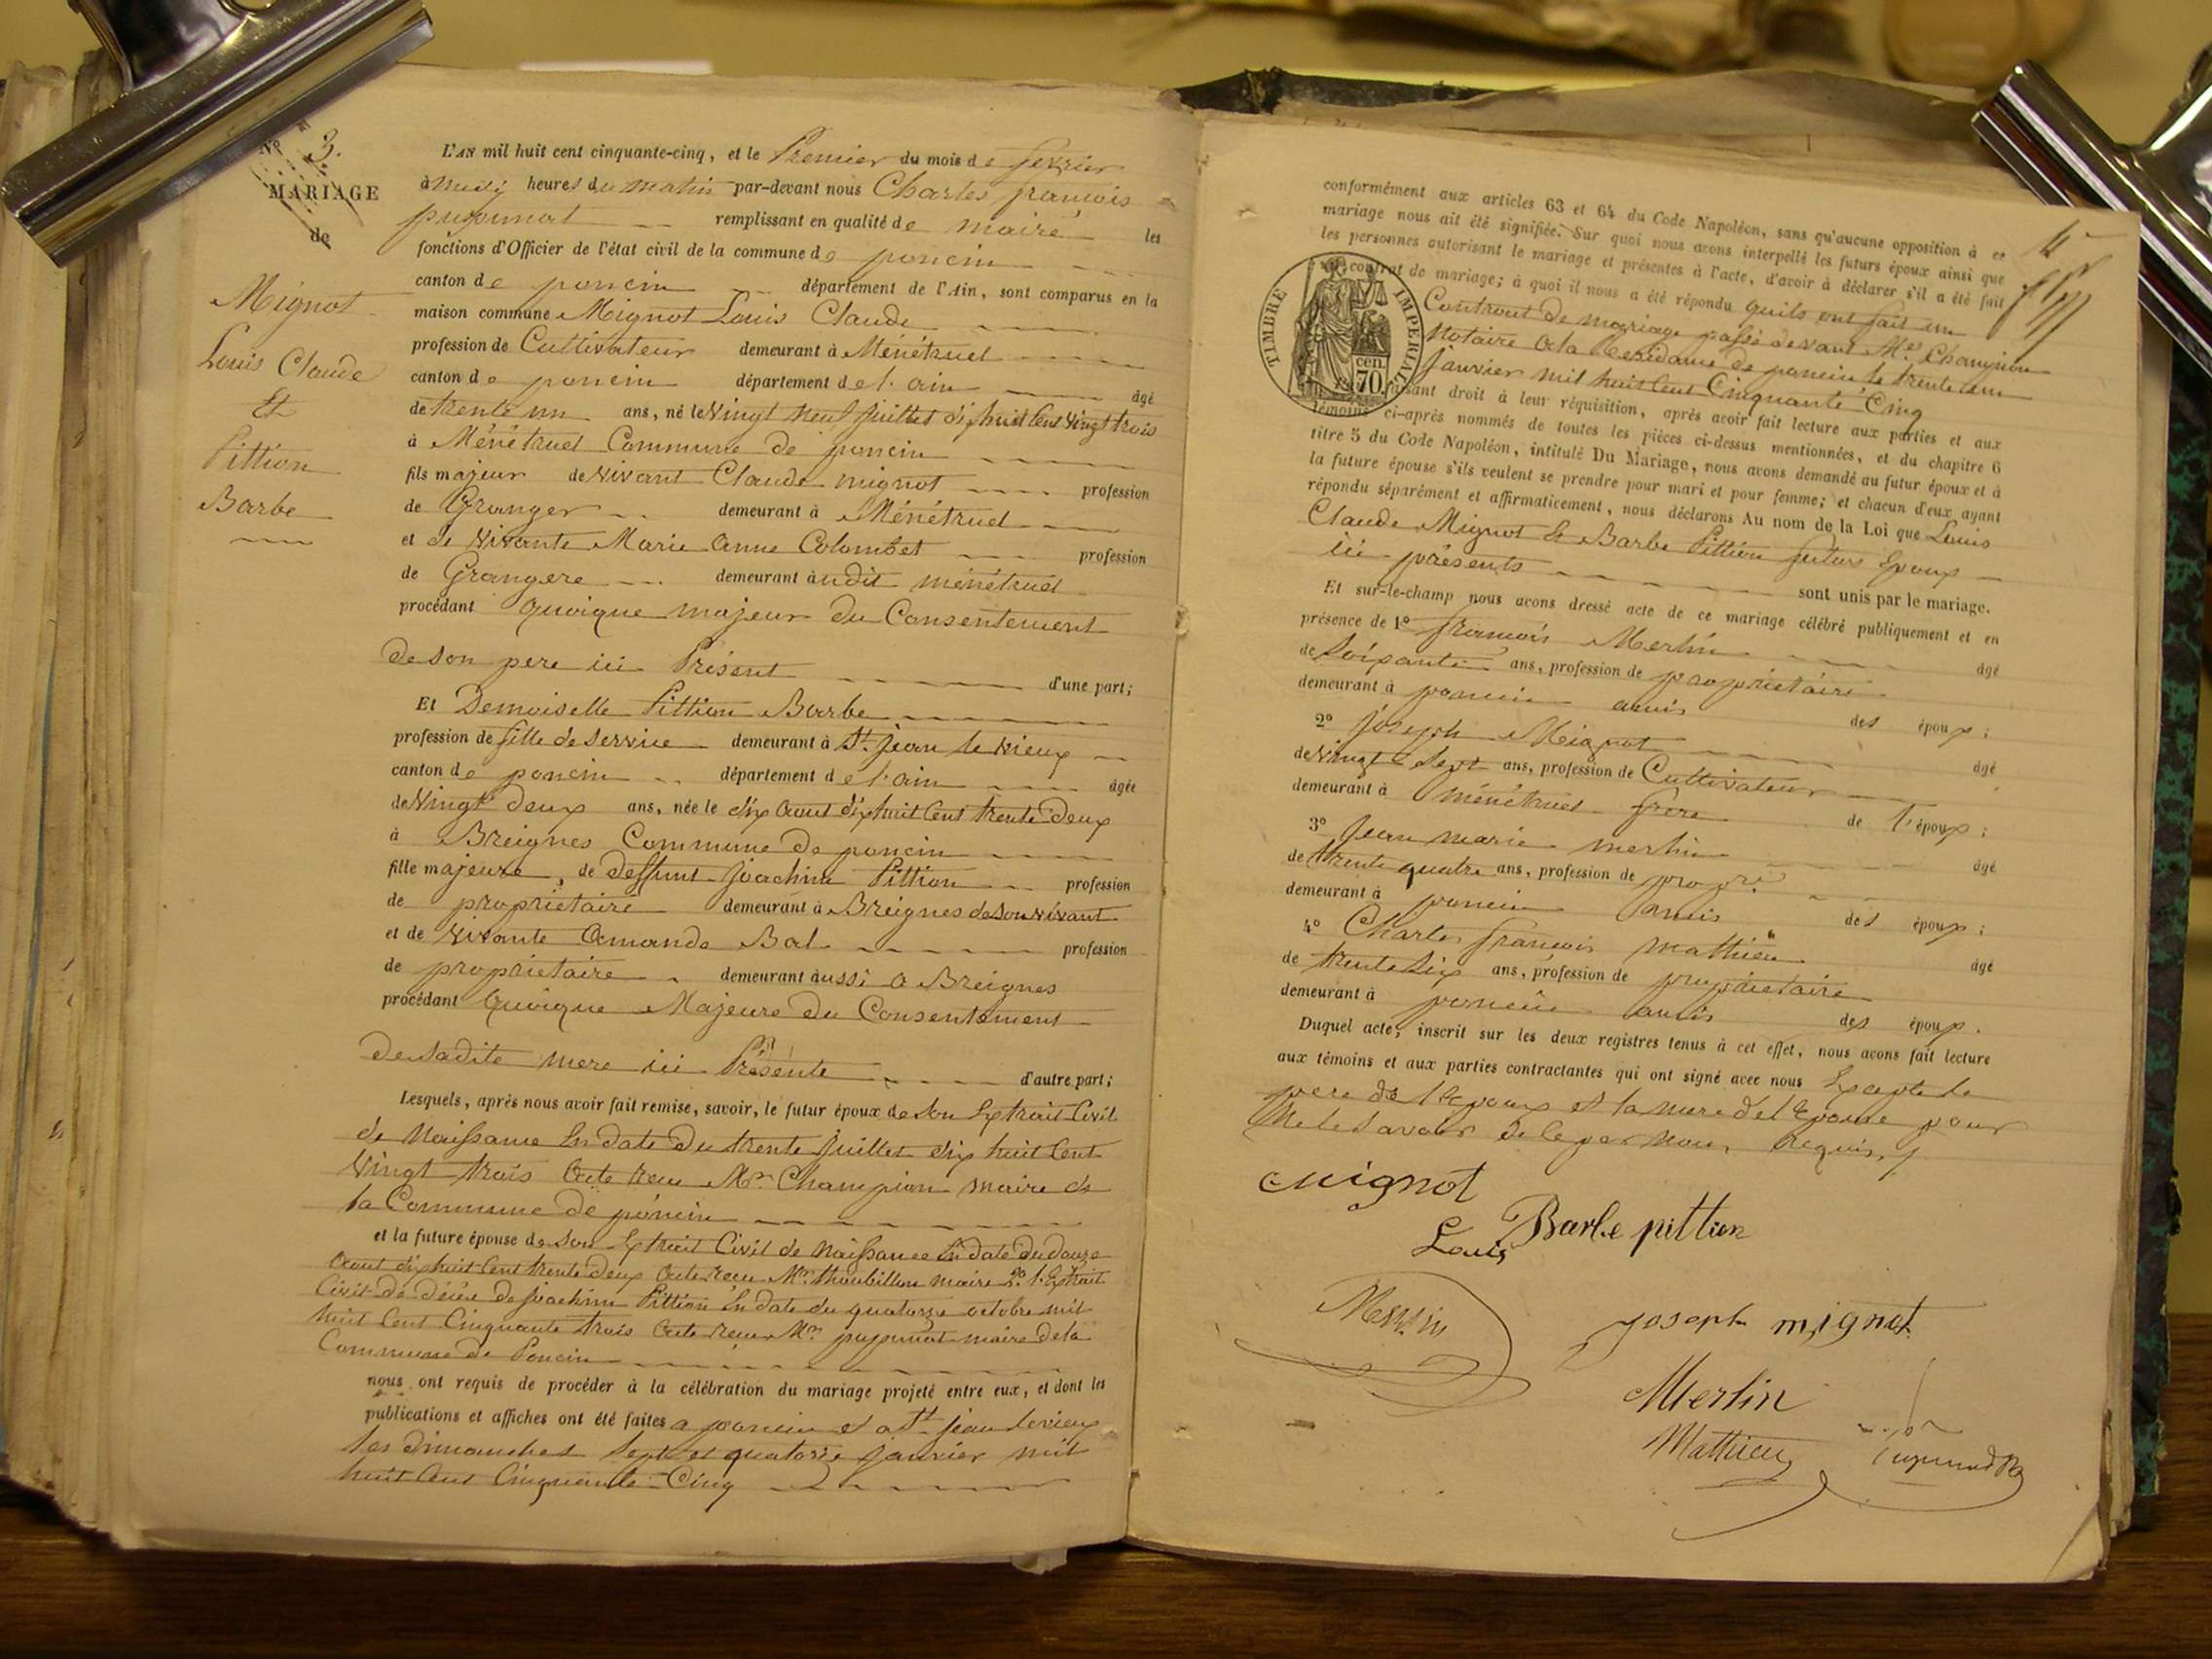 Nº 3.
MARIAGE
de
Mignot
Louis Claude
Et
Pittion
Barbe
L'AN mil huit cent cinquante-cinq, et le Premier du mois de fevrier
à midi heures du matin par-devant nous Charles francois
pupunat remplissant en qualité de maire les
fonctions d'Officier de l'état civil de la commune de poncin
canton de poncin département de l'Ain, sont comparus en la
maison commune Mignot Louis Claude
profession de Cultivateur demeurant à Ménétruel
canton de poncin département de l'ain âgé
de trente un ans, né le Vingt neuf juillet dix huit Cent Vingt trois
à Ménétruel Commune de poncin
fils majeur de Vivant Claude mignot profession
de Granger demeurant à Ménétruel
et de Vivante Marie Anne Colombet profession
de Grangere demeurant àudit ménétruel
procédant quoique majeur du Consentement
de son pere ici Présent d'une part;
Et Demoiselle Pittion Barbe
profession de fille de service demeurant à St. jean le vieux
canton de poncin département de l'ain âgée
de Vingt deux ans, née le dix aout dix huit Cent trente deux
à Breignes Commune de poncin
fille majeure, de deffunt Joachim Pittion profession
de proprietaire demeurant à Breignes de son vivant
et de Vivante Amanda Bal profession
de proprietaire demeurant àussi a Breignes
procédant Quoique Majeure du Consentement
de sadite mere ici Présente d'autre part;
Lesquels, après nous avoir fait remise, savoir, le futur époux de son Extrait Civil
de Naissance En date du trente juillet dix huit Cent
Vingt trois Acte recu Mr. Champion maire de
la Commune de poncin
et la future épouse de son Extrait Civil de Naissance En date du douze
aout dix huit Cent trente deux acte recu Mr. thoubillon maire 2º l'Extrait
Civil de décès de Joachim Pittion En date du quatorze octobre mil
huit Cent Cinquante trois acte recu Mr. pupunat maire de la
Commune de Poncin
nous ont requis de procéder à la célébration du mariage projeté entre eux, et dont les
publications et affiches ont été faites a poncin et a St. jean le vieux
les dimanches sept et quatorze janvier mil
huit Cent Cinquante Cinq
conformément aux articles 63 et 64 du Code Napoléon, sans qu'aucune opposition à ce
mariage nous ait été signifiée. Sur quoi nous avons interpellé les futurs époux ainsi que
les personnes autorisant le mariage et présentes à l'acte, d'avoir à déclarer s'il a été fait
contrat de mariage; à quoi il nous a été répondu quils ont fait un
Contrat de mariage passé devant Me. Champion
Notaire a la Residance de poncin le trente un
janvier mil huit Cent Cinquante Cinq
TIMBRE IMPERIAL
cen. 70
Faisant droit à leur réquisition, après avoir fait lecture aux parties et aux
témoins ci-après nommés de toutes les pièces ci-dessus mentionnées, et du chapitre 6
titre 5 du Code Napoléon, intitulé Du Mariage, nous avons demandé au futur époux et à
la future épouse s'ils veulent se prendre pour mari et pour femme; et chacun d'eux ayant
répondu séparément et affirmativement, nous déclarons Au nom de la Loi que Louis
Claude Mignot Et Barbe Pittion futurs Epoux
ici présents sont unis par le mariage.
Et sur-le-champ nous avons dressé acte de ce mariage célébré publiquement et en
présence de 1º francois Merlin âgé
de soixante ans, profession de proprietaire
demeurant à poncin amis des époux;
2º Joseph Mignot âgé
de Vingt Sept ans, profession de Cultivateur
demeurant à ménétruel frere de l'époux;
3º Jean marie merlin âgé
de trente quatre ans, profession de propre.
demeurant à poncin amis des époux;
4º Charles francois mathieu âgé
de trente Six ans, profession de proprietaire
demeurant à poncin amis des époux.
Duquel acte, inscrit sur les deux registres tenus à cet effet, nous avons fait lecture
aux témoins et aux parties contractantes qui ont signé avec nous Excepte le
pere de l'Epoux et la mere de l'Epouse pour
Ne le savoir de ce par nous Requis
Mignot
Louis
Barbe pittion
Merlin
joseph mignot
Merlin
Mathieu